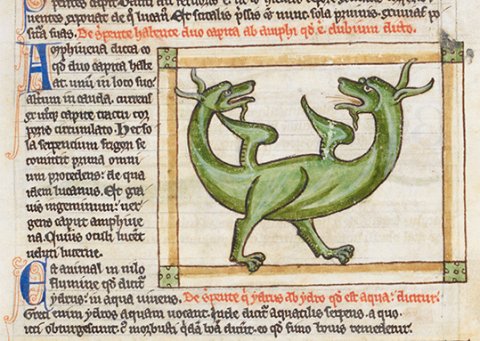 suas. De serpente habente duo capita ab amphi qd e dubium dicto.
Amphiuena dicta eo
qd duo capita habe
at. unum in loco suo
altum in cauda. currens
ex utroq capite tractu cor
poris circulato. Hec so
la serpentium frigori se
comittit prima omni
um procedens. de qua
idem lucanus. Et gra
uis ingeminum uer
gens caput amphiue
na. Cuius oculi lucent
ueluti lucerne.
Est animal in nilo
flumine qd dicit
ydrus. in aqua uiuens. De serpente q ydrus ab ydro qd est aqua dicitur.
Greci enim ydros aquam uocant. Inde dict aquatilis serpens. a quo
icti obturgescunt. morbum boam dicunt. eo qd fimo bouis remedietur.